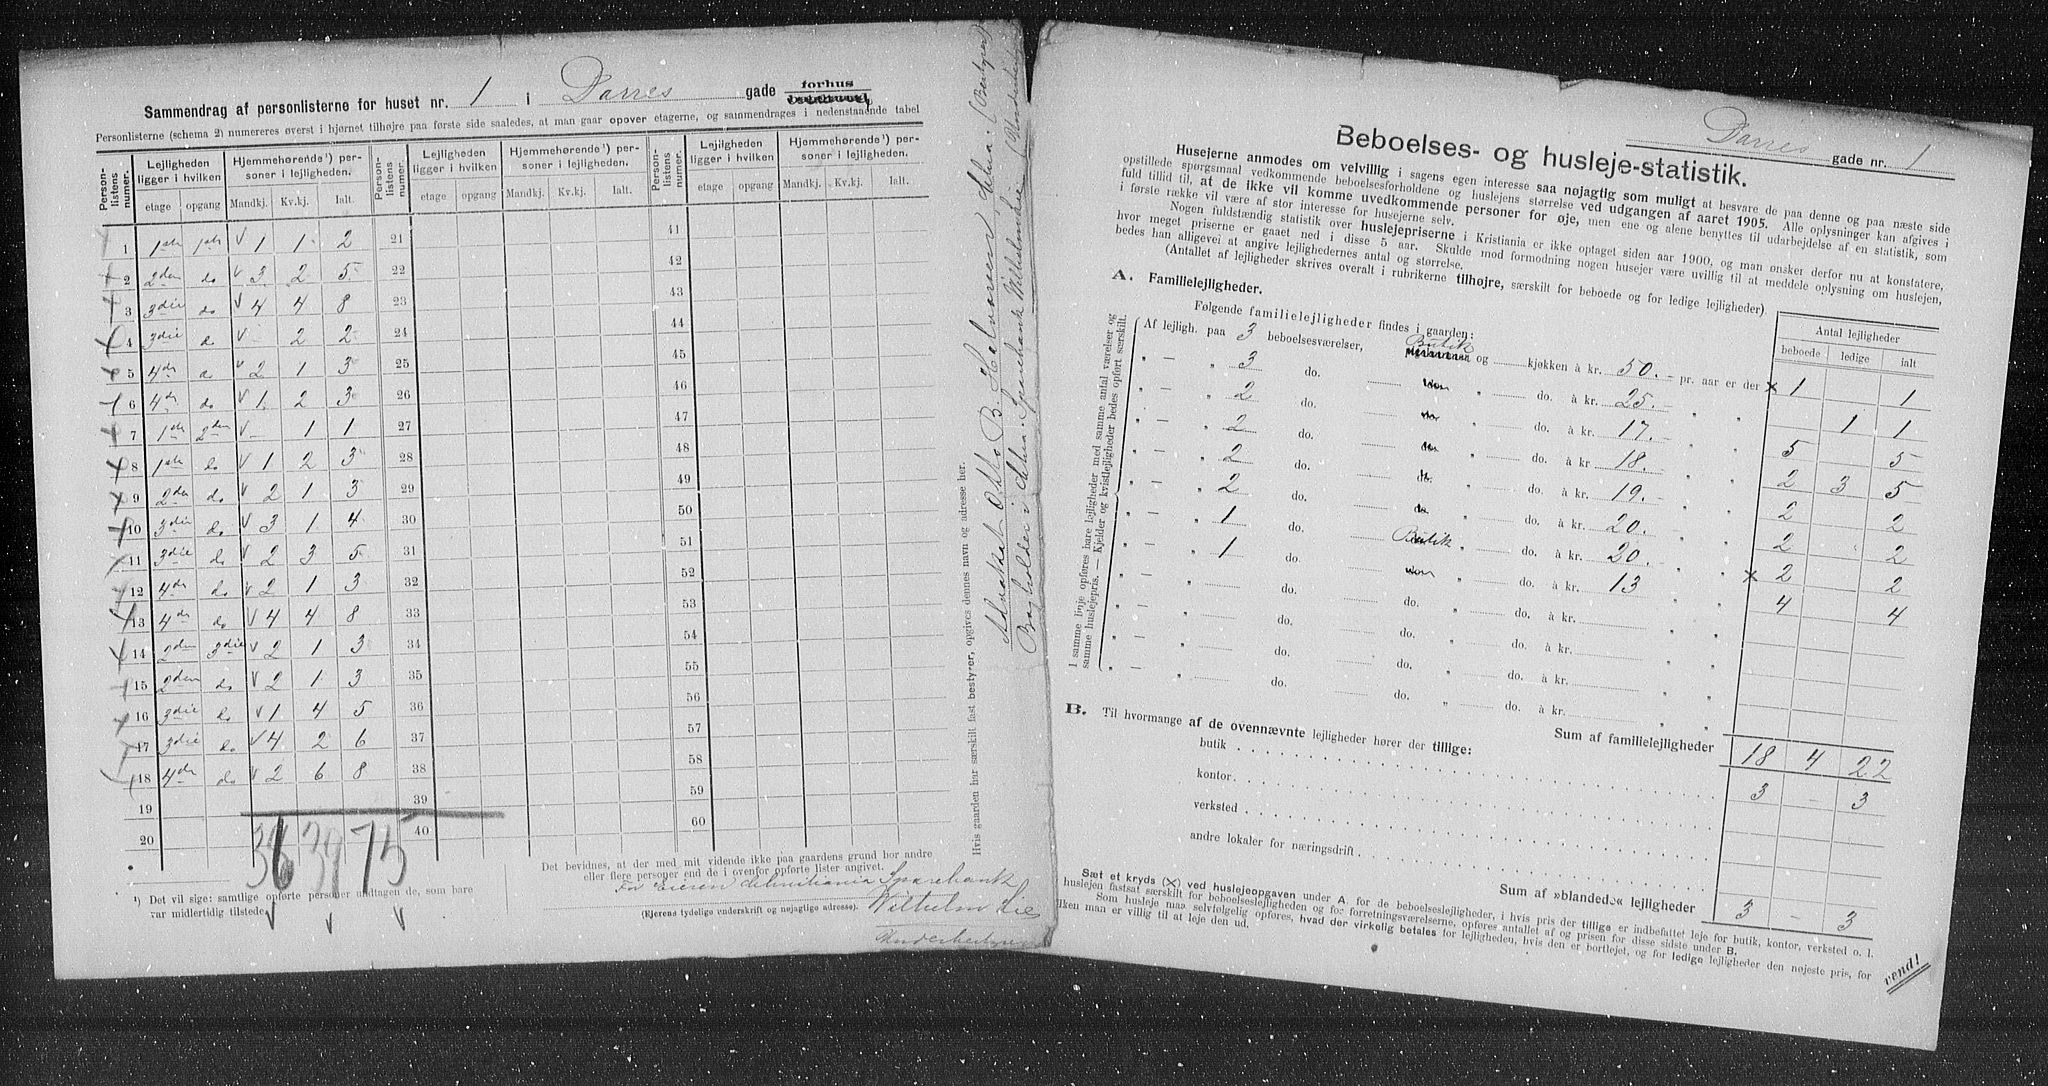 Sammendrag af personlisterne for huset nr. 1 i Darres gade forhus
Personlisterne (schema 2) numereres øverst i hjørnet tilhøjre paa første side saaledes, at man gaar opover etagerne, og sammendrages i nedenstaaende tabel
Personlistens numer. Lejligheden ligger i hvilken etage opgang Hjemmehørende¹) personer i lejligheden. Mandkj. Kv.kj. Ialt.
1 1ste 1ste 1 1 2
2 2den do 3 2 5
3 3die do 4 4 8
4 3die do - 2 2
5 4de do 2 1 3
6 4de do 1 2 3
7 1ste 2den - 1 1
8 1ste do 1 2 3
9 2den do 2 1 3
10 3die do 3 1 4
11 3die do 2 3 5
12 4de do 2 1 3
13 4de do 4 4 8
14 2den 3die 2 1 3
15 2den do 2 1 3
16 3die do 1 4 5
17 3die do 4 2 6
18 4de do 2 6 8
19
20
36 39 75
Personlistens numer. Lejligheden ligger i hvilken etage opgang Hjemmehørende¹) personer i lejligheden. Mandkj. Kv.kj. Ialt.
21
22
23
24
25
26
27
28
29
30
31
32
33
34
35
36
37
38
39
40
Personlistens numer. Lejligheden ligger i hvilken etage opgang Hjemmehørende¹) personer i lejligheden. Mandkj. Kv.kj. Ialt.
41
42
43
44
45
46
47
48
49
50
51
52
53
54
55
56
57
58
59
60
¹) Det vil sige: samtlige opførte personer undtagen de, som bare
var midlertidig tilstede.
Det bevidnes, at der med mit vidende ikke paa gaardens grund bor andre
eller flere personer end de i ovenfor opførte lister angivet.
For Eieren Kristiania Sparebank
Wilhelm Lie
(Ejerens tydelige underskrift og nøjagtige adresse).
Underbestyrer
Hvis gaarden har særskilt fast bestyrer, opgives dennes navn og adresse her.
Advokat Otto B. Halvorsen, Kristiania (Bestyrer)
Bogholder i Chra. Sparebank Wilhelm Lie (Underbestyrer)
Darres gade nr. 1
Beboelses- og husleje-statistik.
Husejerne anmodes om velvillig i sagens egen interesse saa nøjagtig som muligt at besvare de paa denne og paa næste side
opstillede spørgsmaal vedkommende beboelsesforholdene og huslejens størrelse ved udgangen af aaret 1905. Alle oplysninger kan afgives i
fuld tillid til, at de ikke vil komme uvedkommende personer for øje, men ene og alene benyttes til udarbejdelse af en statistik, som
i første række vil være af stor interesse for husejerne selv.
Nogen fuldstændig statistik over huslejepriserne i Kristiania er ikke optaget siden aar 1900, og man ønsker derfor nu at konstatere,
hvor meget priserne er gaaet ned i disse 5 aar. Skulde mod formodning nogen husejer være uvillig til at meddele oplysning om huslejen,
bedes han alligevel at angive lejlighedernes antal og størrelse.
(Antallet af lejligheder skrives overalt i rubrikerne tilhøjre, særskilt for beboede og for ledige lejligheder)
A. Familielejligheder.
Følgende familielejligheder findes i gaarden:
Antal lejligheder
beboede ledige ialt
I samme linje opføres bare lejligheder med samme antal værelser og
samme huslejepris. — Kjelder og kvistlejligheder bedes opført særskilt.
Af lejligh. paa 3 beboelsesværelser, Butik og kjøkken à kr. 50. - pr. aar er der × 1 1
" — " 3 do. " do. à kr. 25. - " " 1 1
" — " 2 do. " do. à kr. 17. - " " 5 5
" — " 2 do. " do. à kr. 18. - " " 2 3 5
" — " 2 do. " do. à kr. 19. - " " 2 2
" — " 2 do. " do. à kr. 20. - " " 2 2
" — " 1 do. Butik " do. à kr. 20. " " × 2 2
" — " 1 do. " do. à kr. 13 " " 4 4
" — " do. do. " do. à kr. " "
" — " do. do. " do. à kr. " "
" — " do. do. " do. à kr. " "
" — " do. do. " do. à kr. " "
Sum af familielejligheder 18 4 22
B. Til hvormange af de ovennævnte lejligheder hører der tillige:
butik 3 - 3
kontor
verksted
andre lokaler for næringsdrift
Sum af »blandede« lejligheder 3 - 3
Sæt et kryds (×) ved huslejeopgaven under A, for de beboelseslejligheder, i hvis pris der tillige er indbefattet leje for butik, kontor, verksted o. l.
Som husleje maa selvfølgelig opføres, hvad der virkelig betales for lejligheden, hvis den er bortlejet, og for ledige lejligheder den nøjeste pris, for
vend!